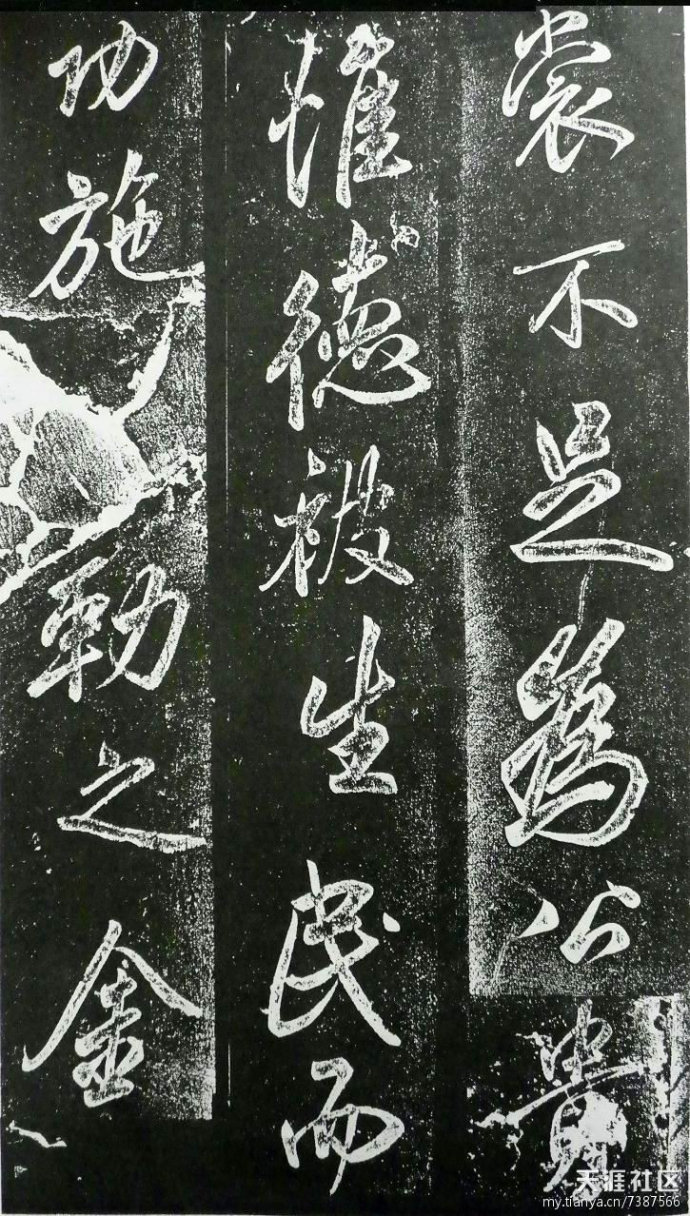 裳不足為公貴
惟德被生民而
功施勒之金
天涯社区
my.tianya.cn/7387566